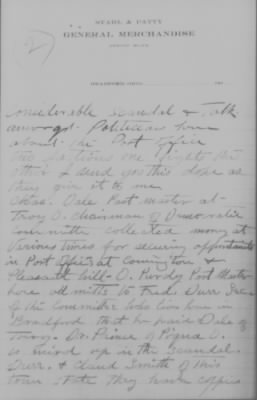 2
STAHL & PATTY
GENERAL MERCHANDISE
BRADFORD, OHIO, 191
considerable scandal & talk
amongst Politicians here
about the Post Office
one factions one fights the
other & send you this dope as
they give it to me
Chas. Dale Post master at
Troy O. Chairman of Democratic
Committee collected money at
Various times for securing appointments
in Post Offices at Covington &
Pleasant Hill O. Purdy Post Master
here admitts to Fred. Durr
of the Committee who lives here in
Bradford that he paid Dale of
Troy. Dr. Prince of Piqua O.
is mixed up in the scandal.
Durr. & Claud Smith of this
town state they have copies